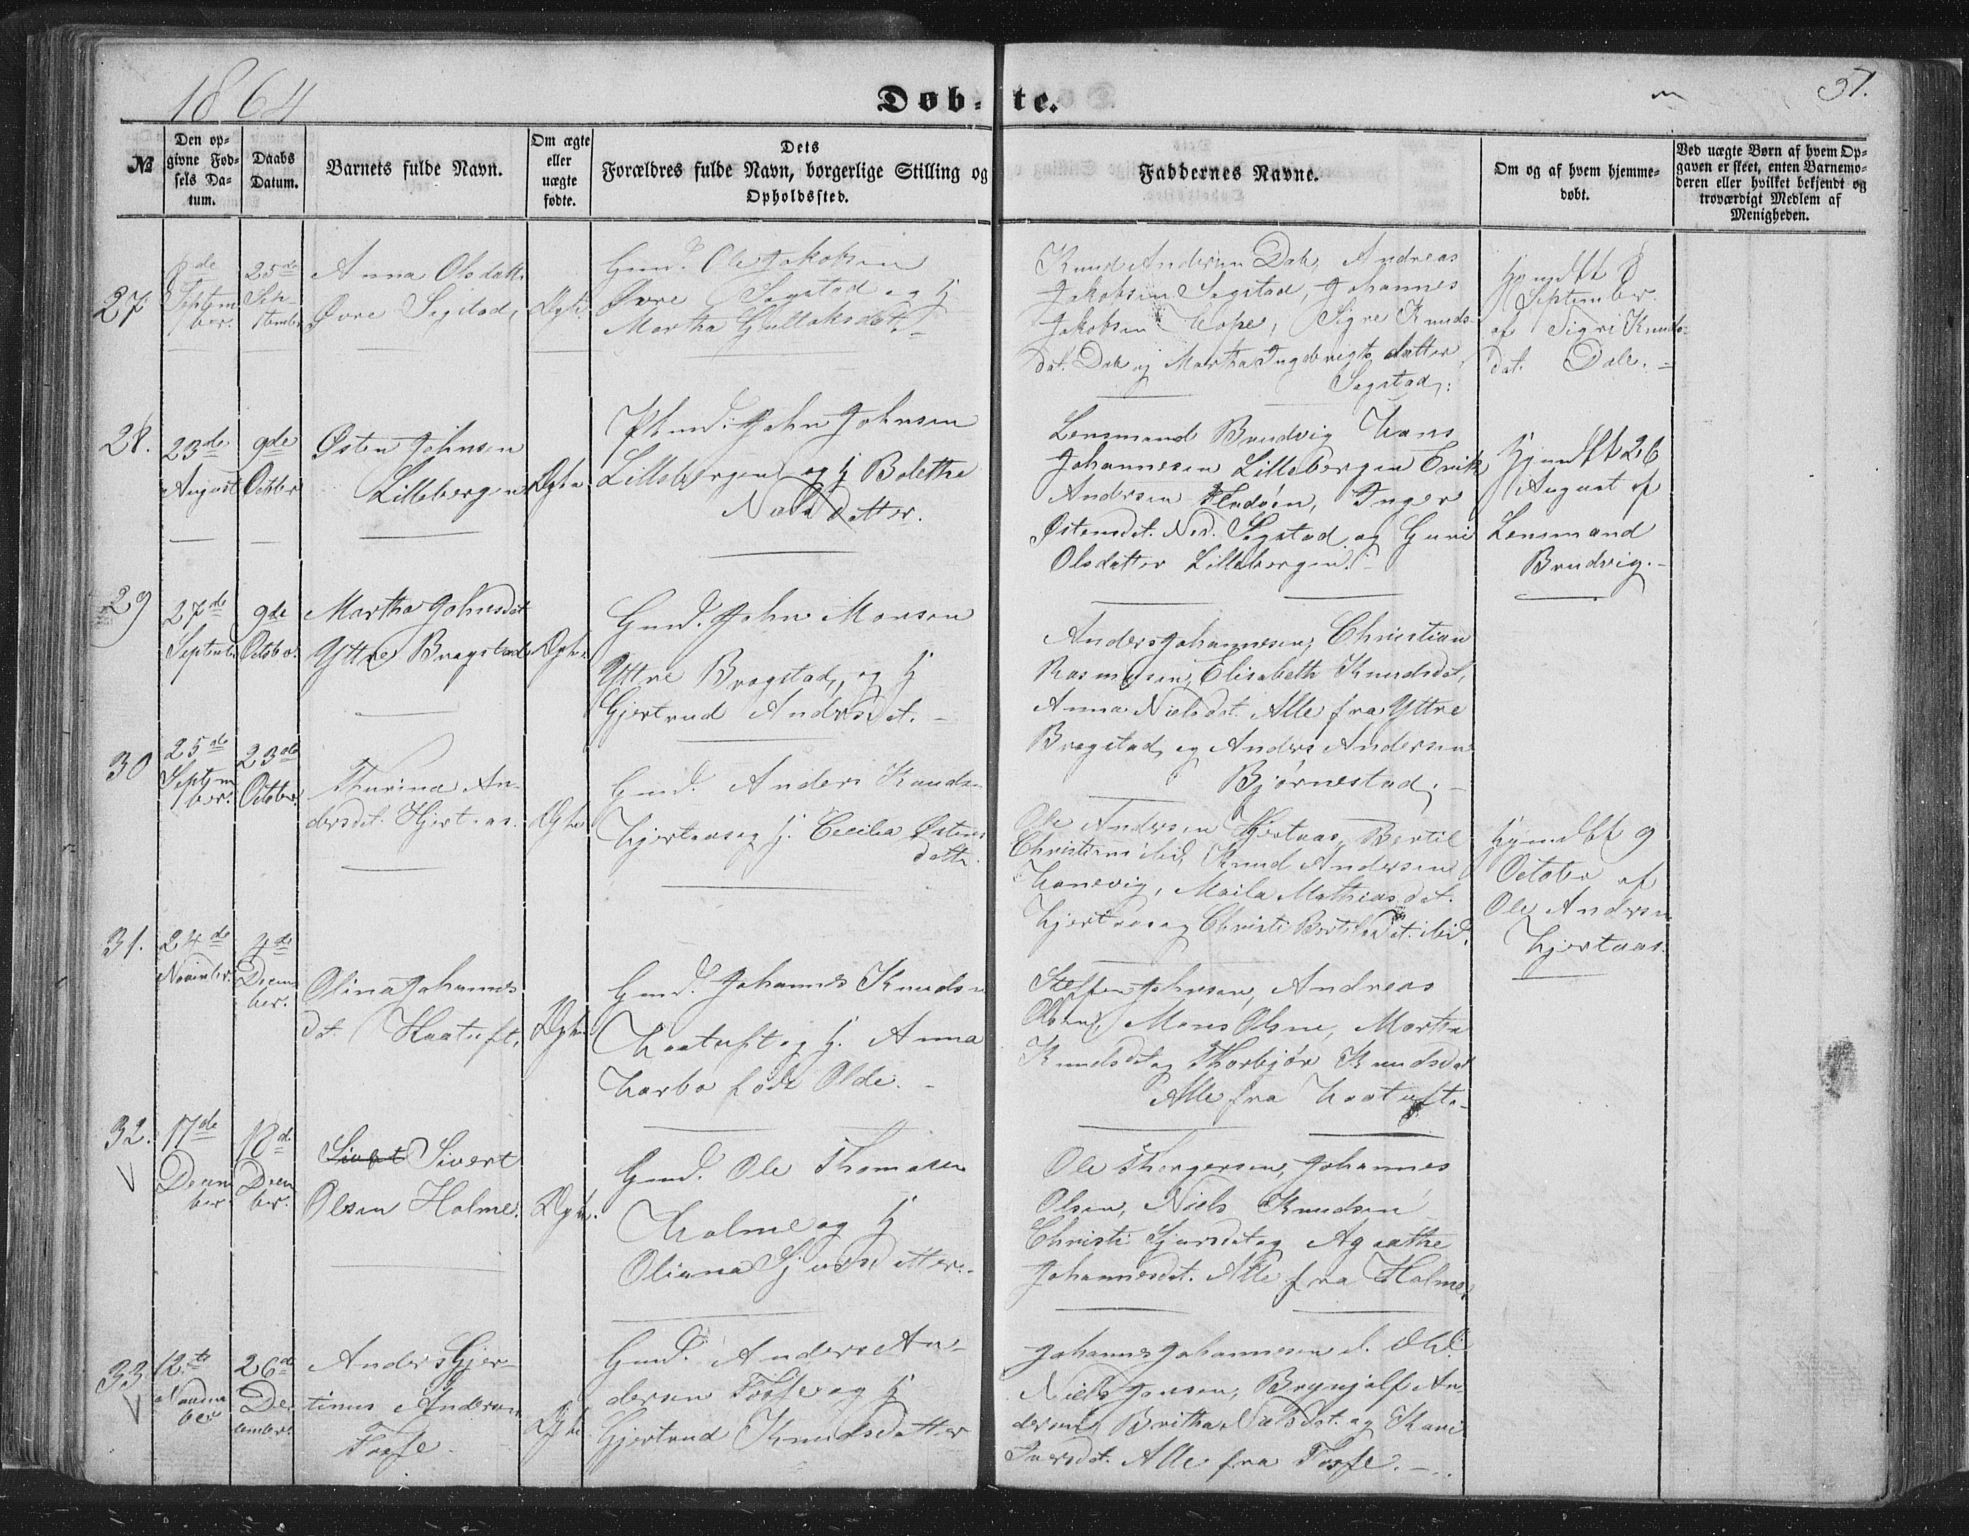 1864
Døb-te.
57.
№
Den op-
givne Fød-
sels Da-
tum.
Daabs
Datum.
Barnets fulde Navn.
Om ægte
eller
uægte
fødte.
Dets
Forældres fulde Navn, borgerlige Stilling og
Opholdssted.
Faddernes Navne.
Om og af hvem hjemme-
døbt.
Ved uægte Børn af hvem Op-
gaven er skeet, enten Barnemo-
deren eller hvilket bekjendt og
troværdigt Medlem af
Menigheden.
27
8de
Septem
ber.
25de
Sep-
tember
Anna Olsdatt.
Øvre Segstad,
Ægte
Gmd. Ole Jakobsen
Øvre Segstad og H
Martha Gullaksdat.
Knud Andersen Dale, Andreas
Jakobsen Segstad, Johannes
Jakobsen Hope, Sigre Knuds-
dat. Dale og Martha Ingebrigtsdatter
Segstad.
Hjmdbt 8
September
af Sigri Knuds-
dat. Dale.
28.
23de
August
9de
October
Østen Johnsen
Lillebergen
Ægte
Phmd. John Johnsen
Lillebergen og H Bolethe
Nelsdatter.
Lensmand Brudvig Hans
Johannesen Lillebergen Erik
Andersen Hadøen, Inger
Østensdt. Ned. Segstad og Guri
Olsdatter Lillebergen.
Hjmdbt 26
August af
Lensmand
Brudvig.
29
27de
Septemb.
9de
Octobr.
Martha Johnsdat
Yttre Brogstad
Ægte
Gmd. John Monsen
Yttre Brogstad, og H
Gjertrud Andersdat.
Anders Johannesen, Christian
Rasmusen, Elisabeth Knudsdat,
Anna Nielsdat. Alle fra Yttre
Brogstad, og Anders Andersen
Bjørnestad.
30
25de
Septem
ber.
23de
October
Thurina An-
dersdat. Hjertaas.
Ægte
Gmd. Anders Knuds-
Hjertaas og H. Cecilia Østens
datt.
Ole Andersen Hjertaas, Bertil
Christians ibid, Knud Andersen
Hanevig, Maila Mathiasdat.
Hjertaas og Christi Bertelsdat. ibid.
Hjmdbt 9
October af
Ole Andersen
Hjertaas.
31.
24de
November.
4de
Decem
ber.
Olina Johannes
dt. Haatuft,
Ægte
Gmd. Johannes Knuds
Haatuft og H. Anna
Harbo født Olde.
Steffen Johnsen, Andreas
Olsen, Mons Olsen, Martha
Knudsdt og Thorbjør Knudsdat
Alle fra Haatuft.
32.
17de
Decem
ber.
18de
Decem
ber.
Sivert Sivert
Olsen Holme.
Ægte.
Gmd. Ole Thomasen
Holme og H
Oliana Sjursdatter.
Ole Thorgersen, Johannes
Olsen, Niels Knudsen
Christi Sjursdt og Agathe
Johannesdt. Alle fra Holme.
33
12te
Novem
ber
26de
De-
cember
Anders Gjer-
tinus Andersen
Fosse.
Ægte
Gmd. Anders An-
dersen Fosse og H
Gjertrud Knudsdatter
Johannes Johannesen
Niels Jonsen, Brynjulf An-
dersen, Britha Nielsdt. og Kari
Iversdt. Alle fra Fosse.